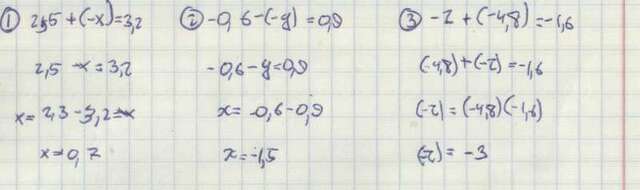 ① 2,5 + (-x) = 3,2
2,5 - x = 3,2
x = 2,3 - 3,2 = x
x = 0,7
② -0,6 - (-y) = 0,9
-0,6 - y = 0,9
x = -0,6 - 0,9
x = -1,5
③ -z + (-4,8) = -1,6
(-4,8) + (-z) = -1,6
(-z) = (-4,8) (-1,6)
(-z) = -3